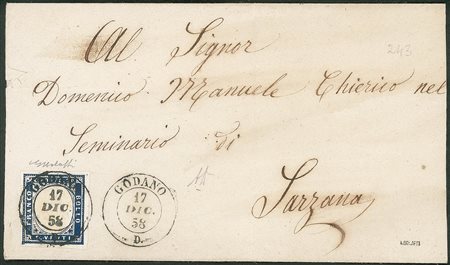 Al Signor
243
Domenico Manuele Chierico nel
Seminario di
Sarzana
GODANO
17
DIC.
58
FRANCO
BOLLO
GODANO
17
DIC.
58
D.